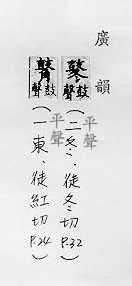 廣韻
鼕鼓聲(平聲二冬、徒冬切P.32)
鼓聲(平聲一東、徒紅切P.24)